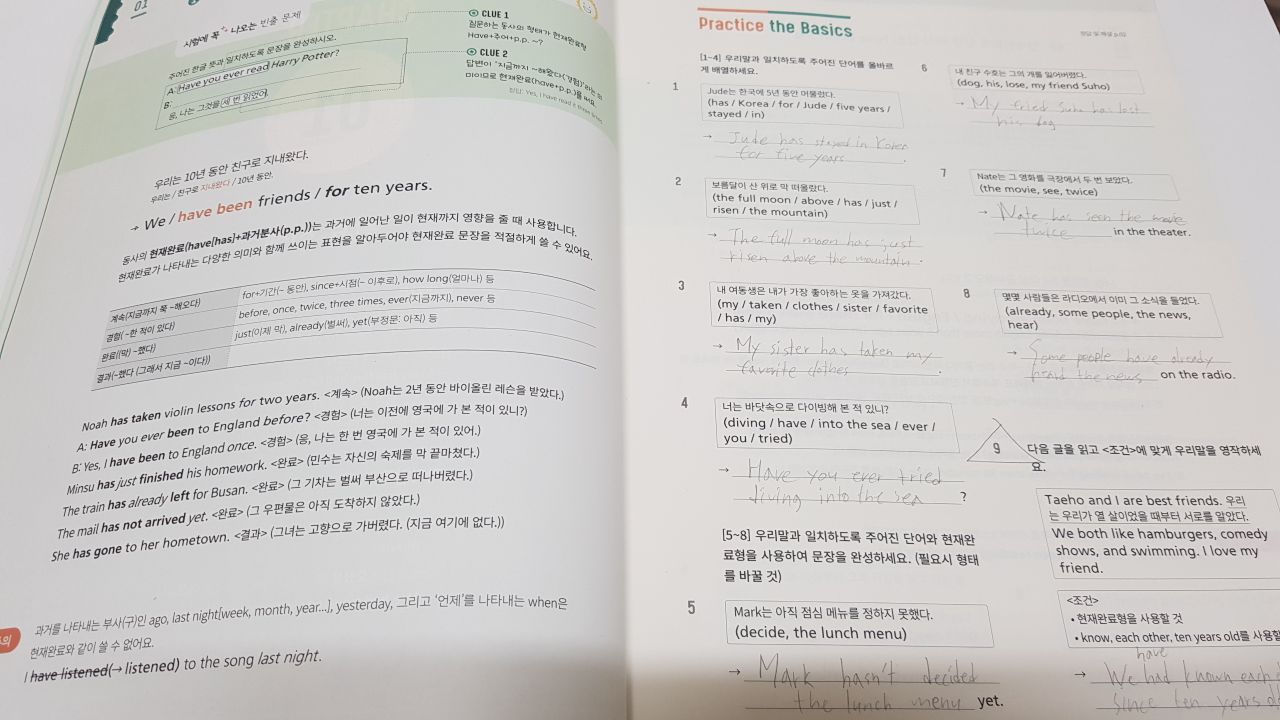 01
시험에 꼭 나오는 빈출 문제
주어진 한글 뜻과 일치하도록 문장을 완성하시오.
A: Have you ever read Harry Potter?
B:
응, 나는 그것을 세 번 읽었어
CLUE 1
질문하는 동사의 형태가 현재완료형
Have+주어+p.p. ~?
CLUE 2
답변이 "지금까지 ~해왔다(경험)"라는 의
미이므로 현재완료(have+p.p.)를 써요.
정답: Yes, I have read it three times
우리는 10년 동안 친구로 지내왔다.
우리는 / 친구로 지내왔다 / 10년 동안.
→ We / have been friends / for ten years.
동사의 현재완료(have[has]+과거분사(p.p.))는 과거에 일어난 일이 현재까지 영향을 줄 때 사용합니다.
현재완료가 나타내는 다양한 의미와 함께 쓰이는 표현을 알아두어야 현재완료 문장을 적절하게 쓸 수 있어요.
계속(지금까지 쭉 ~해오다) for+기간(~ 동안), since+시점(~ 이후로), how long(얼마나) 등
경험(~한 적이 있다) before, once, twice, three times, ever(지금까지), never 등
완료((막) ~했다) just(이제 막), already(벌써), yet(부정문: 아직) 등
결과(~했다 (그래서 지금 ~이다))
Noah has taken violin lessons for two years. <계속> (Noah는 2년 동안 바이올린 레슨을 받았다.)
A: Have you ever been to England before? <경험> (너는 이전에 영국에 가 본 적이 있니?)
B: Yes, I have been to England once. <경험> (응, 나는 한 번 영국에 가 본 적이 있어.)
Minsu has just finished his homework. <완료> (민수는 자신의 숙제를 막 끝마쳤다.)
The train has already left for Busan. <완료> (그 기차는 벌써 부산으로 떠나버렸다.)
The mail has not arrived yet. <완료> (그 우편물은 아직 도착하지 않았다.)
She has gone to her hometown. <결과> (그녀는 고향으로 가버렸다. (지금 여기에 없다.))
과거를 나타내는 부사(구)인 ago, last night[week, month, year...], yesterday, 그리고 '언제'를 나타내는 when은
현재완료와 같이 쓸 수 없어요.
I have listened(→ listened) to the song last night.
Practice the Basics
정답 및 해설 p.02
[1~4] 우리말과 일치하도록 주어진 단어를 올바르
게 배열하세요.
1
Jude는 한국에 5년 동안 머물렀다.
(has / Korea / for / Jude / five years /
stayed / in)
→ Jude has stayed in Korea
for five years.
2
보름달이 산 위로 막 떠올랐다.
(the full moon / above / has / just /
risen / the mountain)
→ The full moon has just
risen above the mountain.
3
내 여동생은 내가 가장 좋아하는 옷을 가져갔다.
(my / taken / clothes / sister / favorite
/ has / my)
→ My sister has taken my
favorite clothes.
4
너는 바닷속으로 다이빙해 본 적 있니?
(diving / have / into the sea / ever /
you / tried)
→ Have you ever tried
diving into the sea ?
[5~8] 우리말과 일치하도록 주어진 단어와 현재완
료형을 사용하여 문장을 완성하세요. (필요시 형태
를 바꿀 것)
5
Mark는 아직 점심 메뉴를 정하지 못했다.
(decide, the lunch menu)
→ Mark hasn't decided
the lunch menu yet.
6
내 친구 수호는 그의 개를 잃어버렸다.
(dog, his, lose, my friend Suho)
→ My fried Suho has lost
his dog
7
Nate는 그 영화를 극장에서 두 번 보았다.
(the movie, see, twice)
→ Nate has seen the movie
twice in the theater.
8
몇몇 사람들은 라디오에서 이미 그 소식을 들었다.
(already, some people, the news,
hear)
→ Some people have already
heard the news on the radio.
9
다음 글을 읽고 <조건>에 맞게 우리말을 영작하세
요.
Taeho and I are best friends. 우리
는 우리가 열 살이었을 때부터 서로를 알았다.
We both like hamburgers, comedy
shows, and swimming. I love my
friend.
<조건>
• 현재완료형을 사용할 것
• know, each other, ten years old를 사용할
have
→ We had known each
since ten years old